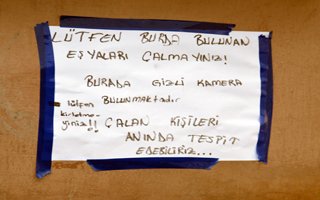 LÜTFEN BURDA BULUNAN
EŞYALARI ÇALMAYINIZ!
BURADA GİZLİ KAMERA
BULUNMAKtadır
lütfen
kirletme-
yiniz!!
ÇALAN KİŞİLERİ
ANINDA TESPİT
EDEBİLİRİZ...